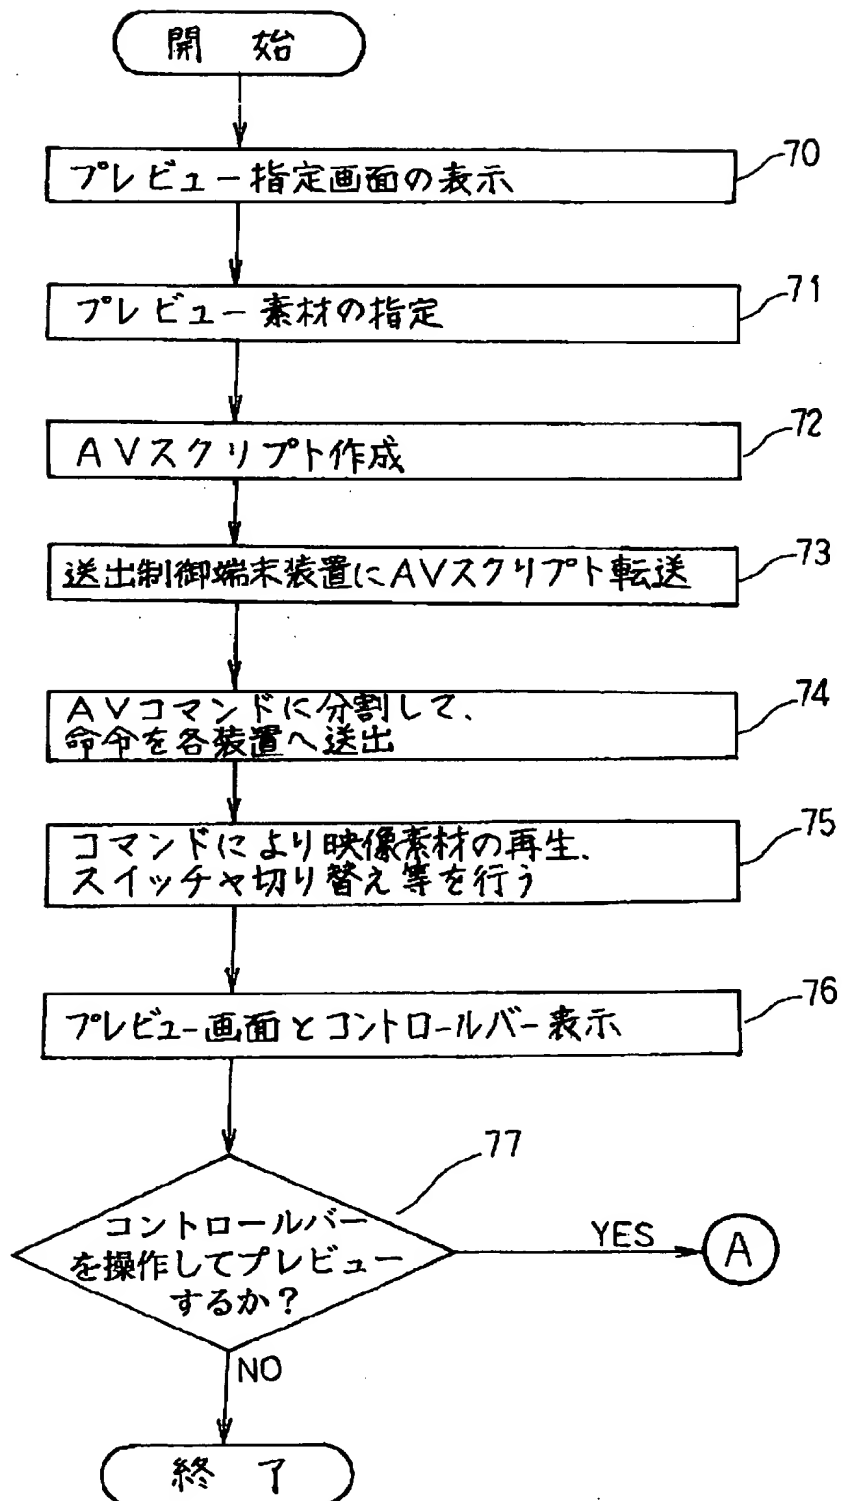 開 始
プレビュー指定画面の表示
70
プレビュー素材の指定
71
AVスクリプト作成
72
送出制御端末装置にAVスクリプト転送
73
AVコマンドに分割して、
命令を各装置へ送出
74
コマンドにより映像素材の再生、
スイッチャ切り替え等を行う
75
プレビュー画面とコントロールバー表示
76
77
コントロールバー
を操作してプレビュー
するか?
YES
A
NO
終 了